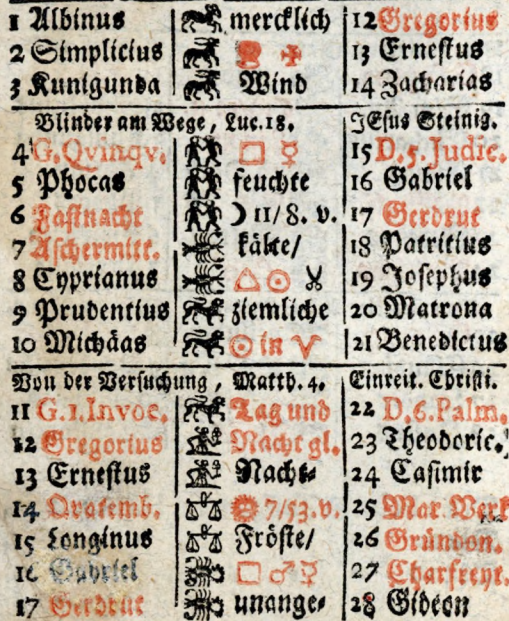 1 Albinus mercklich 12 Gregorius
2 Simplicius 13 Ernestus
3 Kunigunda Wind 14 Zacharias
Blinder am Wege, Luc. 18. JEsus Steinig.
4 G. Qvinqv. □ ☿ 15 D. 5. Judic.
5 Phocas feuchte 16 Gabriel
6 Fastnacht ☽ 11/8. v. 17 Gerdrut
7 Aschermitt. kälte/ 18 Patritius
8 Cyprianus △ ☉ 19 Josephus
9 Prudentius ziemliche 20 Matrona
10 Michäas ☉ in ♈ 21 Benedictus
Von der Versuchung, Matth. 4. Einreit. Christi.
11 G. 1. Invoc. Tag und 22 D. 6. Palm.
12 Gregorius Nacht gl. 23 Theodoric.
13 Ernestus Nacht- 24 Casimir
14 Qvatemb. 7/53. v. 25 Mar. Verk
15 Longinus Fröste/ 26 Gründon.
16 Gabriel □ ♂ ☿ 27 Charfreyt.
17 Gerdrut unange- 28 Gideon